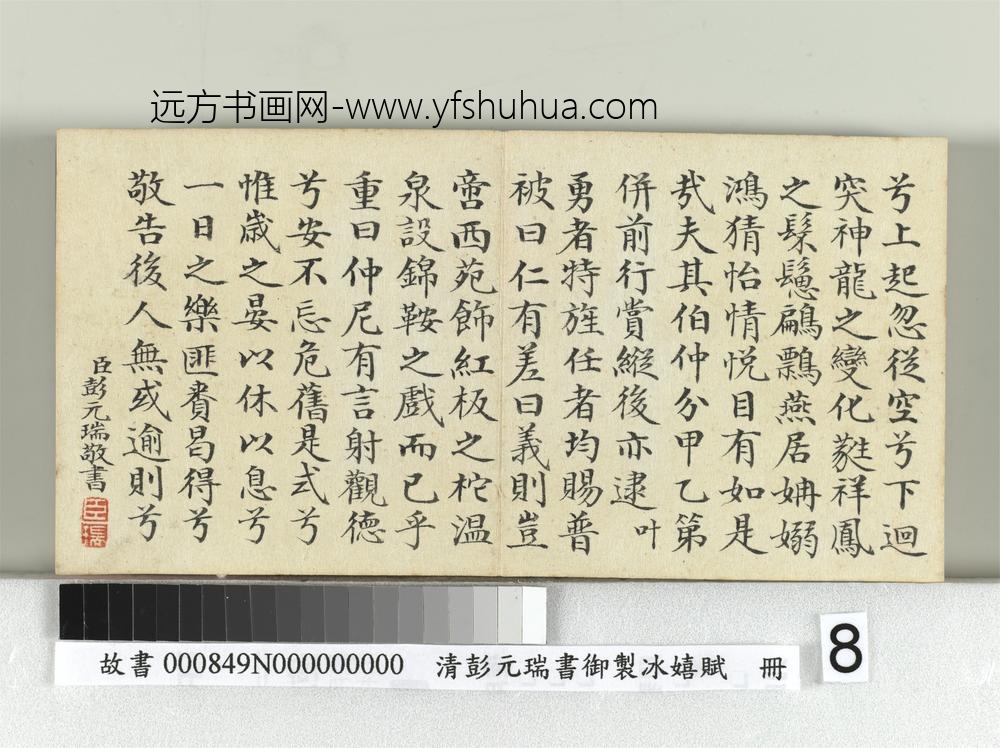 远方书画网-www.yfshuhua.com
兮上起忽従空兮下迴
突神龍之變化蕤祥鳳
之髹鬆翩鸜燕居姌嫋
鴻猜怡情悅目有如是
㢤夫其伯仲分甲乙第
併前行賞縱後亦逮叶
勇者特旌任者均賜普
被曰仁有差曰義則豈
啻西苑飾紅板之柁温
泉設錦鞍之戲而已乎
重曰仲尼有言射觀徳
兮安不忘危舊是式兮
惟歲之晏以休以息兮
一日之樂匪賚曷得兮
敬告後人無或逾則兮
臣彭元瑞敬書
8
故書 000849N000000000 清彭元瑞書御製冰嬉賦 冊